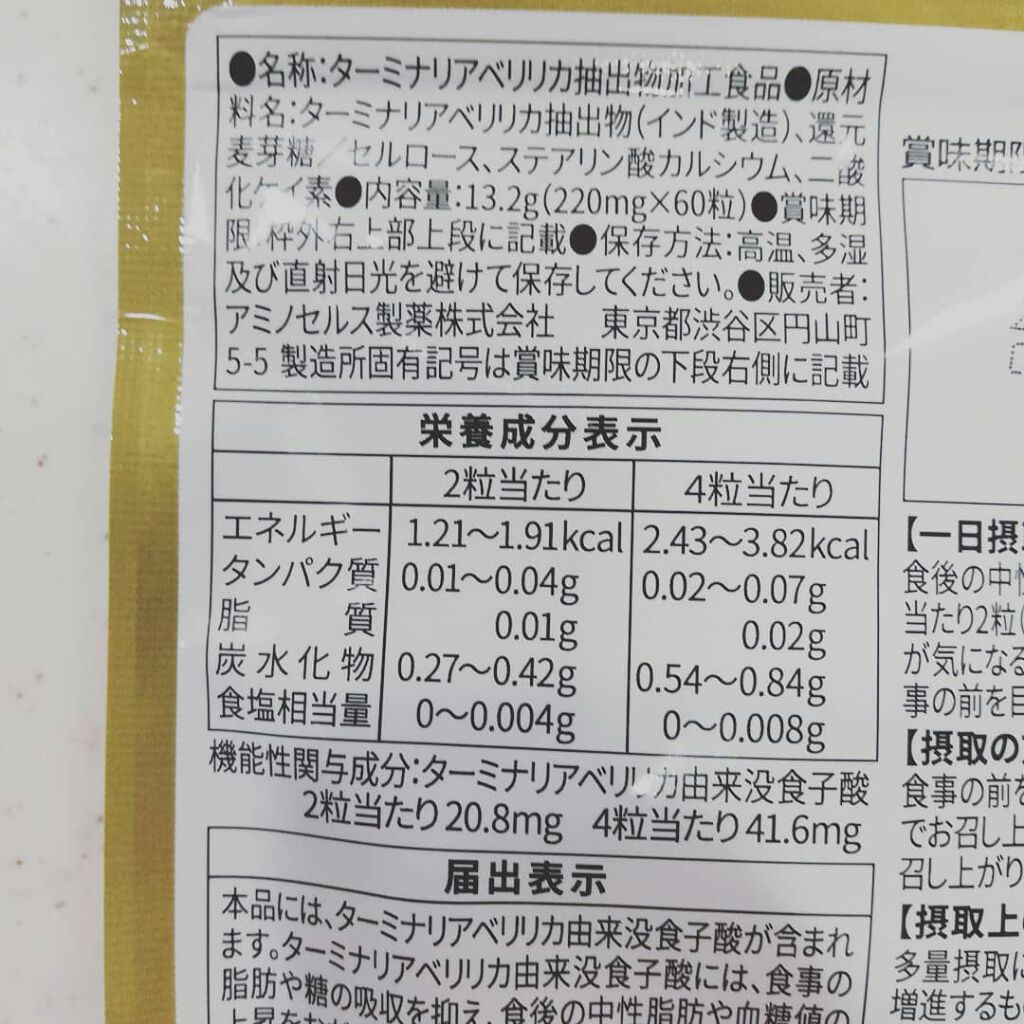 ●名称:ターミナリアベリリカ抽出物加工食品●原材
料名:ターミナリアベリリカ抽出物(インド製造)、還元
麦芽糖/セルロース、ステアリン酸カルシウム、二酸
化ケイ素●内容量:13.2g(220mg×60粒)●賞味期
限:枠外右上部上段に記載●保存方法:高温、多湿
及び直射日光を避けて保存してください。●販売者:
アミノセルス製薬株式会社 東京都渋谷区円山町
5-5 製造所固有記号は賞味期限の下段右側に記載
栄養成分表示
2粒当たり 4粒当たり
エネルギー 1.21〜1.91kcal 2.43〜3.82kcal
タンパク質 0.01〜0.04g 0.02〜0.07g
脂質 0.01g 0.02g
炭水化物 0.27〜0.42g 0.54〜0.84g
食塩相当量 0〜0.004g 0〜0.008g
機能性関与成分:ターミナリアベリリカ由来没食子酸
2粒当たり20.8mg 4粒当たり41.6mg
届出表示
本品には、ターミナリアベリリカ由来没食子酸が含まれ
ます。ターミナリアベリリカ由来没食子酸には、食事の
脂肪や糖の吸収を抑え、食後の中性脂肪や血糖値の
上昇をおだ
賞味期限
【一日摂
食後の中
当たり2粒
が気になる
事の前を
【摂取の
食事の前を
でお召し上
召し上がり
【摂取上
多量摂取に
増進するも